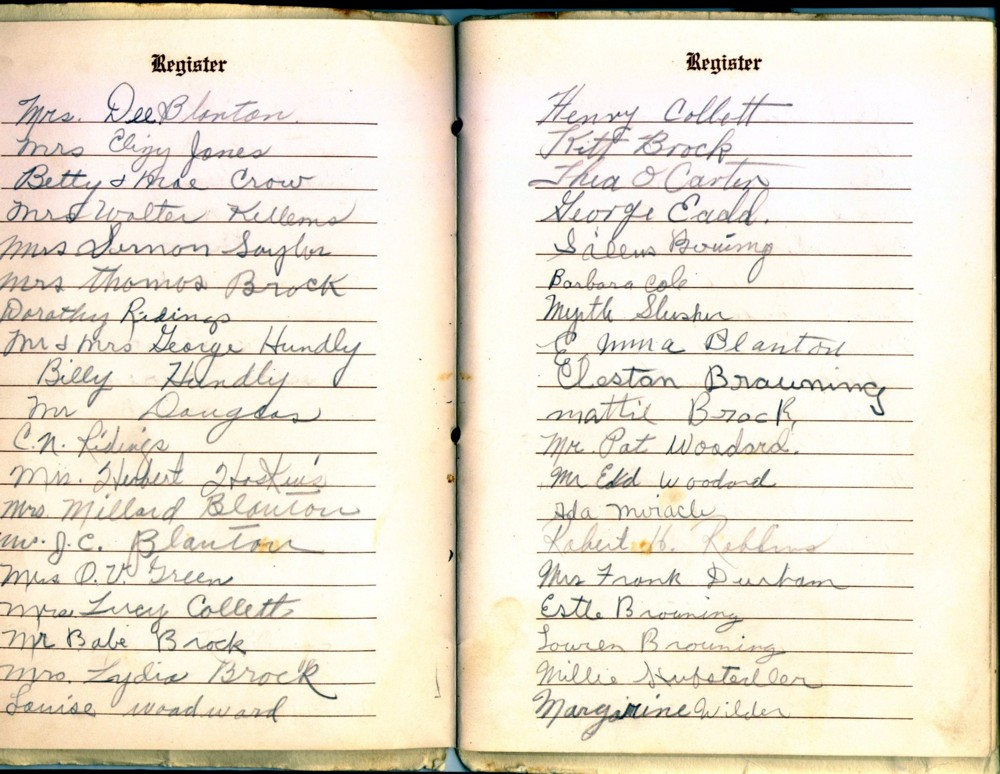 Register
Mrs. Dee Blanton
Mrs Elizy Jones
Betty & Mae Crow
Mrs Walter Kellems
Mrs Vernon Saylor
Mrs Thomas Brock
Dorothy Ridings
Mr & Mrs George Hundly
Billy Hundly
Mr Douglas
C. N. Ridings
Mrs. Herbert Hoskins
Mrs. Millard Blanton
J. C. Blanton
Mrs O. V. Green
Mrs. Lucy Collett
Mr Babe Brock
Mrs. Lydia Brock
Louise Woodward
Register
Henry Collett
Kitt Brock
Thea O Carter
George Eadd.
Barbara Cole
Myrtle Slusher
Emma Blanton
Eleston Brauning
Mattie Brock
Mr. Pat Woodard.
Mr Edd Woodard
Ada Miracle
Robert H. Robbins
Mrs Frank Durham
Estle Browning
Louren Browning
Millie Hubstedler
Margarine Wilder